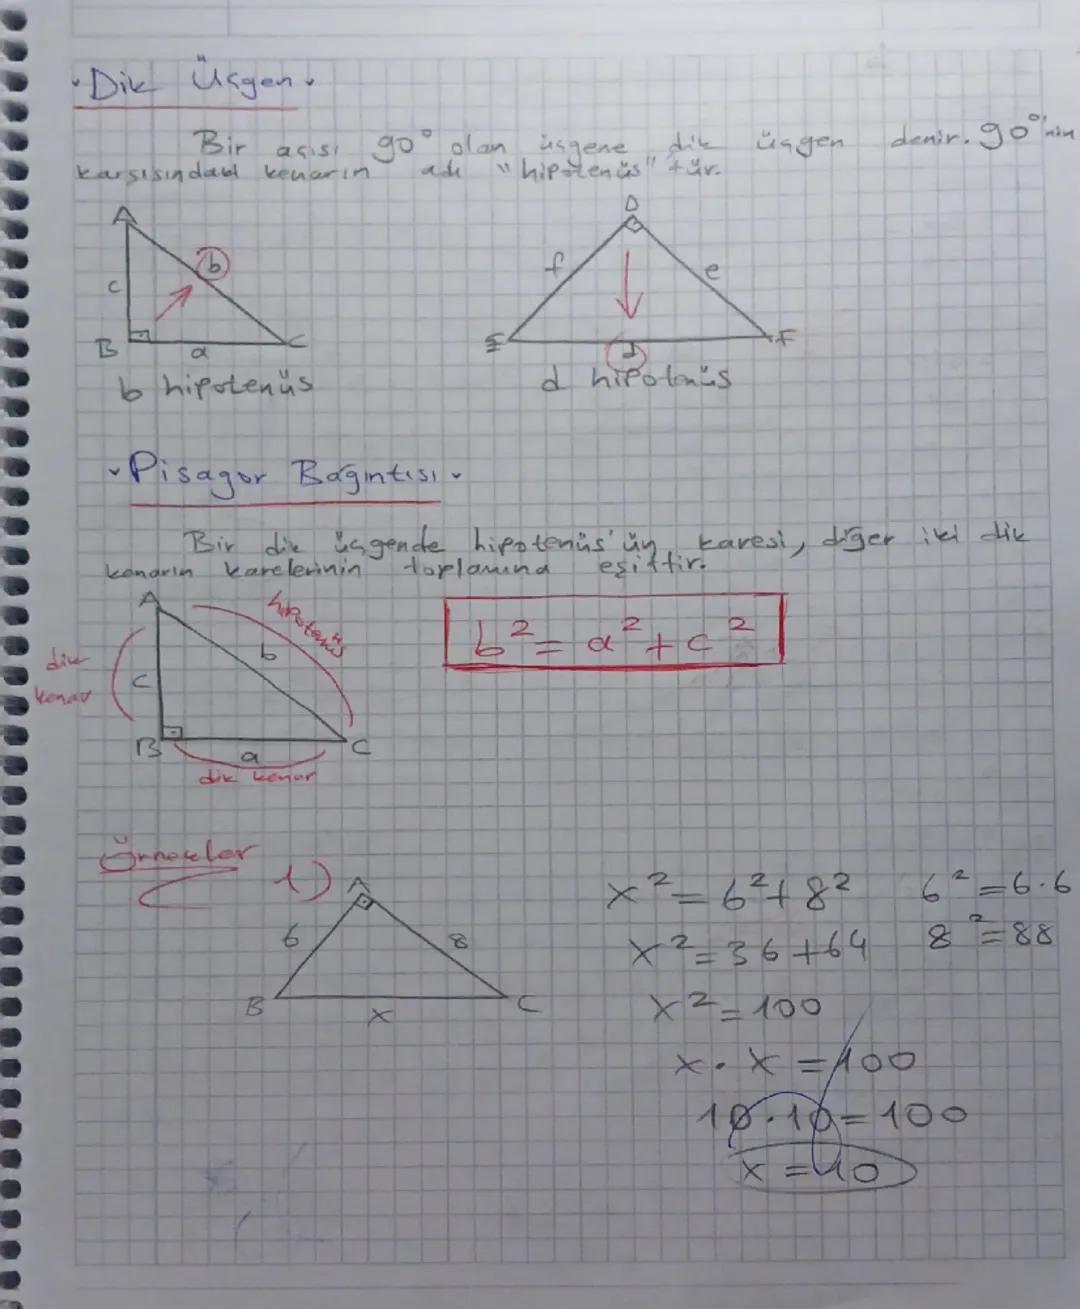 Dik Üçgen
Bir açısı 90° olan üçgene dik üçgen denir. 90°'nin
karşısındaki kenarın adı "hipotenüs"tür.
A
b
c
B
a
C
b hipotenüs
D
f
e
E
d
F
d hipotenüs
Pisagor Bağıntısı
Bir dik üçgende hipotenüs'ün karesi, diğer iki dik
kenarın karelerinin toplamına eşittir.
A
hipotenüs
b
dik
kenar
c
B
a
C
dik kenar
b² = a² + c²
Örnekler
1)
A
6
8
B
x
C
x² = 6² + 8²
6² = 6.6
x² = 36 + 64
8² = 88
x² = 100
x . x = 100
10 . 10 = 100
x = 10